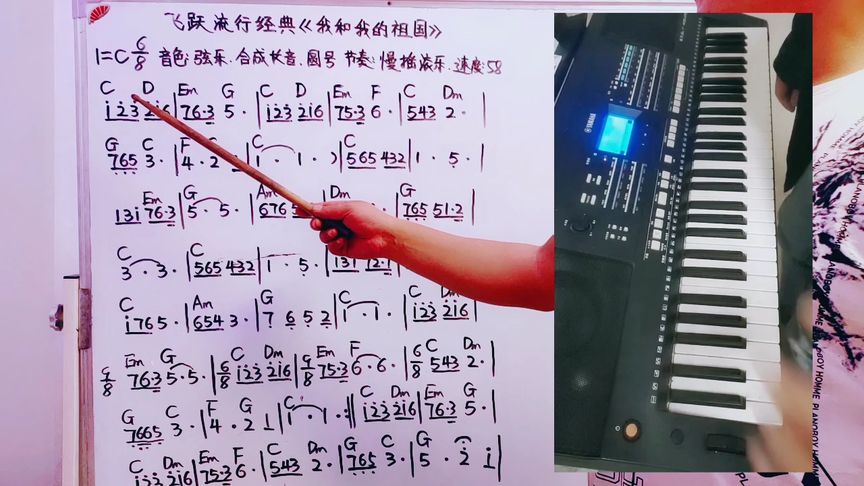 飞跃流行经典《我和我的祖国》
1=C 6/8 音色:弦乐、合成长音、圆号 节奏:慢摇滚乐、速度:58
C D Em G C D Em F C Dm
1̇2̇3̇ 2̇1̇6 | 76·3 5· | 1̇2̇3̇ 2̇1̇6 | 75·3 6· | 543 2· |
G C F G C C
765 3· | 4·2 | 1· 1· ) | 565 432 | 1· 5· |
Em G Am Dm G
131̇ 76·3 | 5· 5· | 676 5 | 765 51·2 |
C C
3· 3· | 565 432 | 1· 5· | 131̇ 72·1
C Am G C C Dm
1̇765· | 654 3· | 7 6 5 2 | 1· 1· | 1̇2̇3̇ 2̇1̇6 |
Em G C Dm Em F C Dm
6/8 76·3 5· 5· | 6/8 1̇2̇3̇ 2̇1̇6 | 6/8 75·3 6· 6· | 6/8 543 2· |
G C F G C C Dm Em G
7665 3· | 4·2 1 | 1· 1· :‖ 1̇2̇3̇ 2̇1̇6 | 76·3 5· |
C Dm Em F C Dm G C G
1̇2̇3̇ 2̇1̇6 | 75·3 6· | 543 2· | 765 3· | 5· 2̇ 1̇ |
YAMAHA